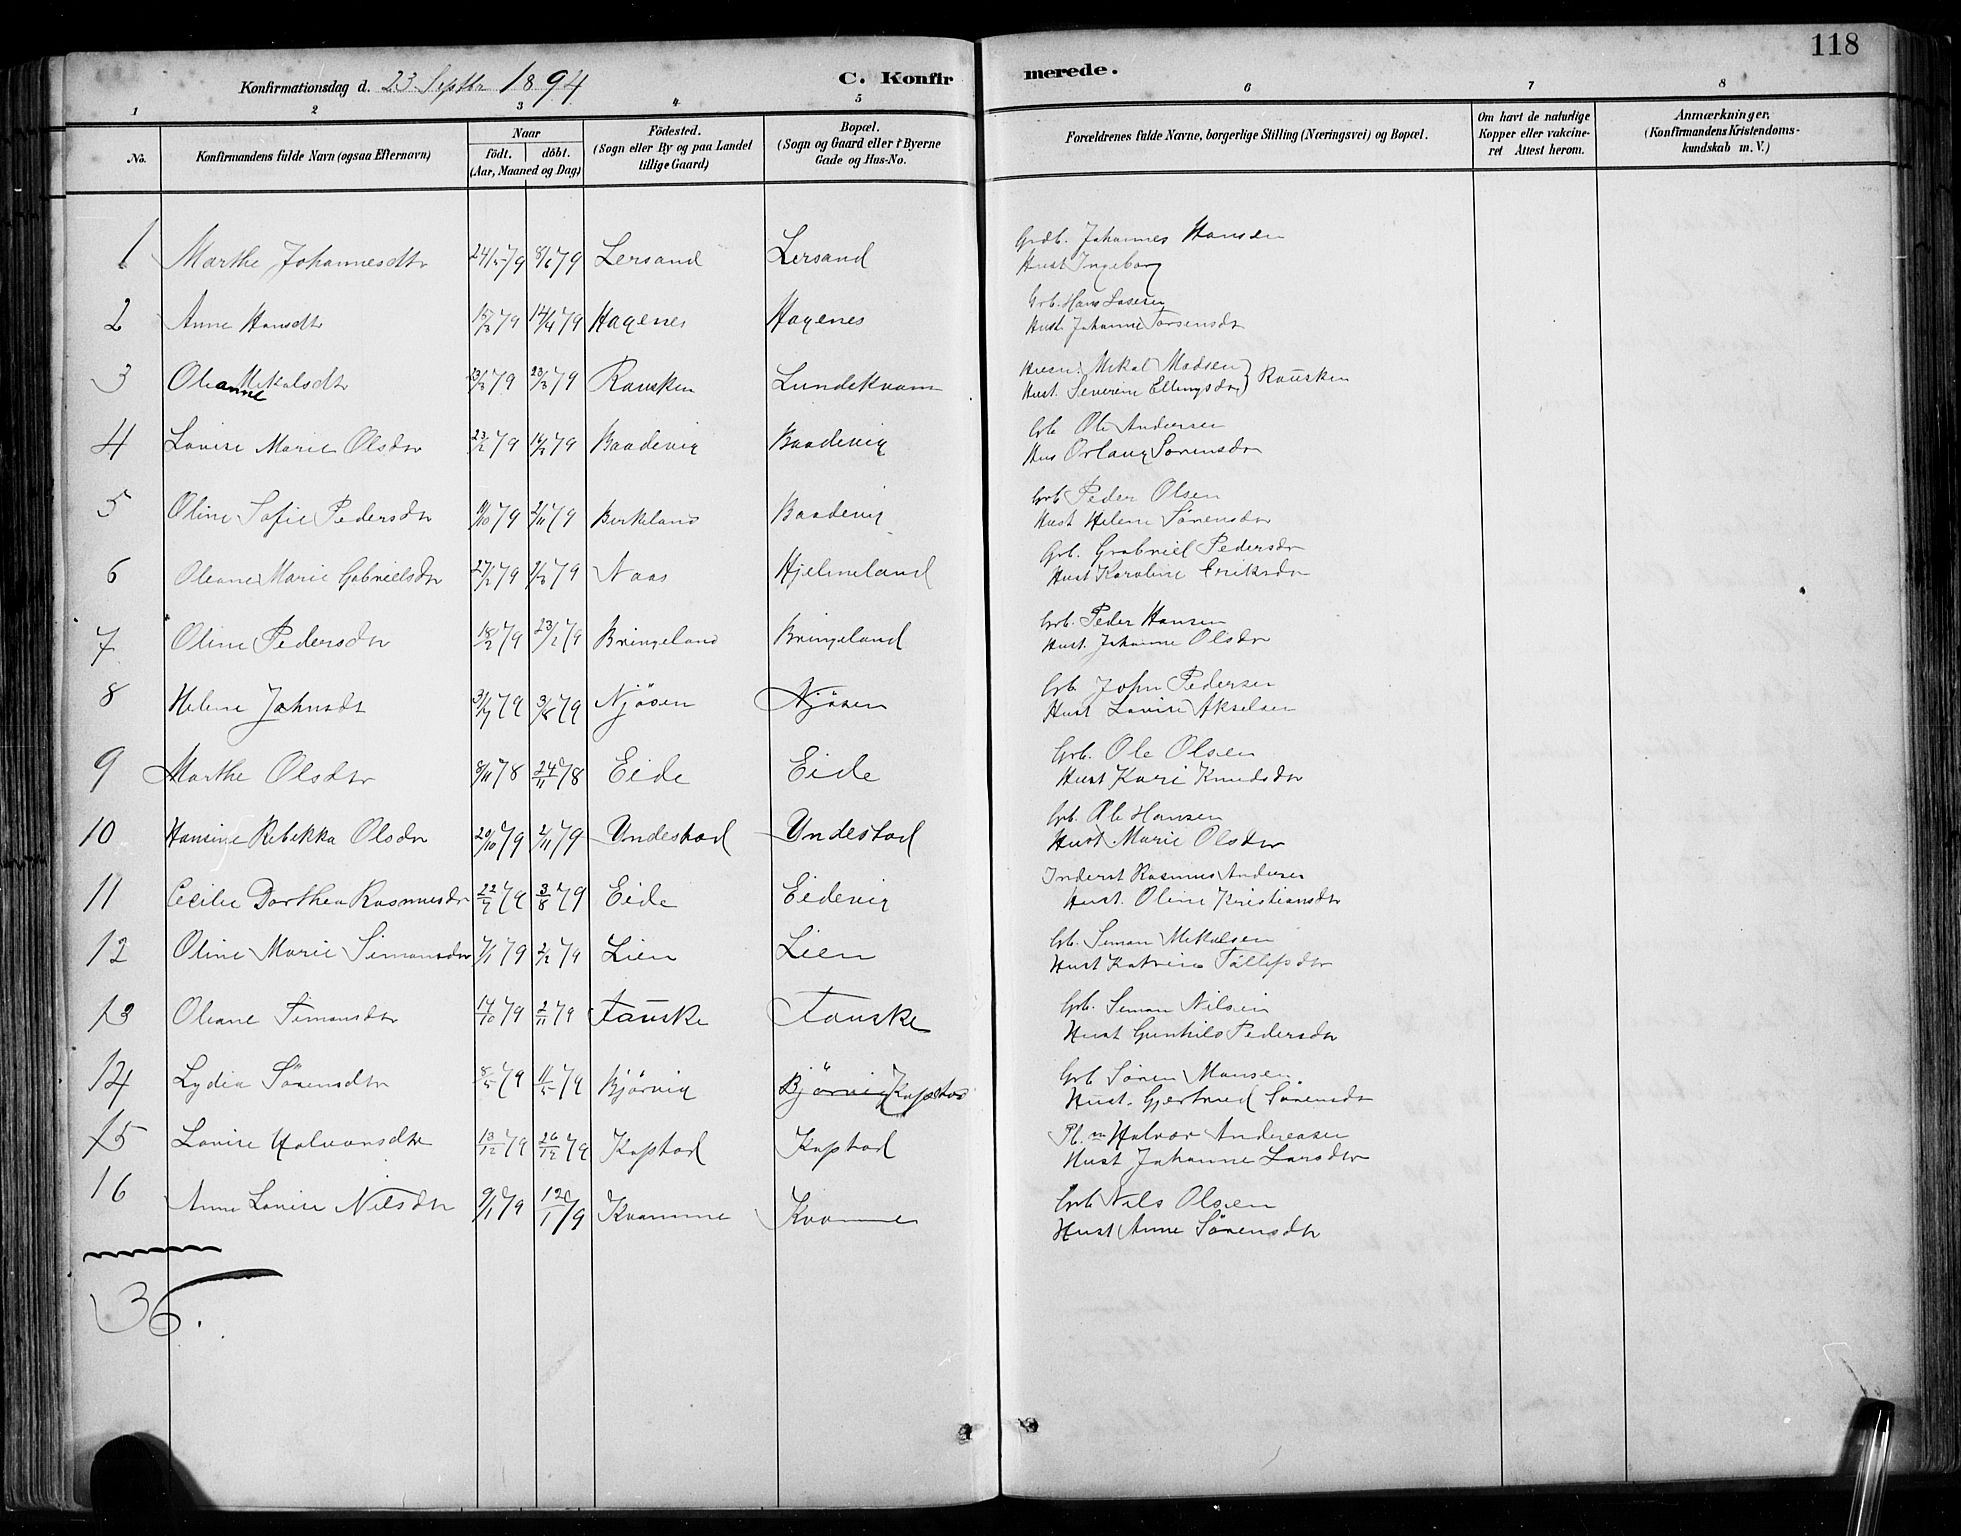 118
Konfirmationsdag d. 23 Septbr 1894 C. Konfirmerede.
1 2 3 4 5 6 7 8
No. Konfirmandens fulde Navn (ogsaa Efternavn) Naar födt. döbt. (Aar, Maaned og Dag) Födested. (Sogn eller By og paa Landet tillige Gaard) Bopæl. (Sogn og Gaard eller i Byerne Gade og Hus-No. Forældrenes fulde Navne, borgerlige Stilling (Næringsvei) og Bopæl. Om havt de naturlige Kopper eller vakcineret Attest herom. Anmærkninger, (Konfirmandens Kristendomskundskab m. V.)
1 Marthe Johannesdtr 24/5 79 8/6 79 Lersand Lersand Grdb. Johannes Hansen
Hust Ingeborg
2 Anne Hansdtr 15/3 79 14/4 79 Hagenes Hagenes Grb. Hans
Hust Johanne
3 Oleanne Mikalsdtr 23/3 79 Rausken Lundekvam Husm. Mikal Madsen } Rausken
Hust. Severine Ellingsdtr
4 Lovise Marie Olsdtr 23/2 79 79 Baadevig Baadevig Grb Ole Andersen
Hus Orlaug Sørensdtr
5 Oline Sofie Pedersdtr 79 2/11 79 Birkeland Baadevig Grb Peder Olsen
Hust Helene Sörensdtr
6 Oleane Marie Gabrielsdtr 27/2 79 79 Naas Hjelmeland Grb. Grabriel Pedersdtr
Hust Karoline Eriksdtr
7 Oline Pedersdtr 18/2 79 23/2 79 Bringeland Bringeland Grb. Peder Hansen
Hust. Johanne Olsdtr
8 Helene Johnsdtr 79 3/8 79 Njösen Njösen Grb. John Pedersen
Hust Lovise Akselsen
9 Marthe Olsdtr 8/11 78 24/11 78 Eide Eide Grb. Ole Olsen
Hust Kari Knudsdtr
10 Hansine Rebekka Olsdtr 20/10 79 2/11 79 Undestad Undestad Grb. Ole Hansen
Hust Marie Olsdtr
11 Cecilie Dorthea Rasmusdtr 22/7 79 3/8 79 Eide Eidevig Inderst Rasmus Andersen
Hust. Oline Kristiansdtr
12 Oline Marie Simonsdtr 7/1 79 2/2 79 Lien Lien Grb. Simon Mikalsen
Hust Katrine Tollefsdtr
13 Oleane Simonsdtr 17/10 79 2/11 79 Fauske Fauske Grb. Simon Nilsen
Hust Gunhild Pedersdtr
14 Lydia Sörensdtr 8/5 79 11/5 79 Bjørvig Bjørvig Kapstad Grb Sören Monsen
Hust. Gjertrud Sörensdtr
15 Lovise Halvorsdtr 13/12 79 26/12 79 Kapstad Kapstad Pl.m Halvor Andreasen
Hust Johanne Larsdtr
16 Anne Lovise Nilsdtr 9/1 79 12/1 79 Kvamme Kvamme Grb Nils Olsen
Hust Anne Sörensdtr
36.